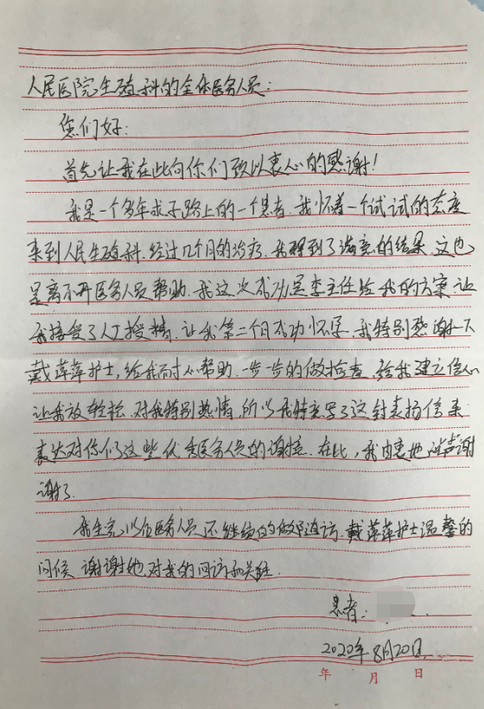 人民医院生殖科的全体医务人员：
您们好：
首先让我在此向你们致以衷心的感谢！
我是一个多年求子路上的一个患者，我怀着一个试试的态度
来到人民生殖科，经过几个月的治疗，我得到了满意的结果，这也
是离不开医务人员帮助，我这次成功是李主任给我的方案让
我接受了人工授精，让我第二个月成功怀孕，我特别感谢一下
戴萍萍护士，给我耐心帮助，一步一步的做检查，给我建立信心
让我放轻松，对我特别热情，所以我特意写了这封表扬信来
表达对你们这些优秀医务人员的谢意，在此，我由衷地说声谢
谢了
我生完以后医务人员还继续的做跟追访，戴萍萍护士温馨的
问候，谢谢她对我的回访和关照．
患者：
2020年8月20日
年 月 日